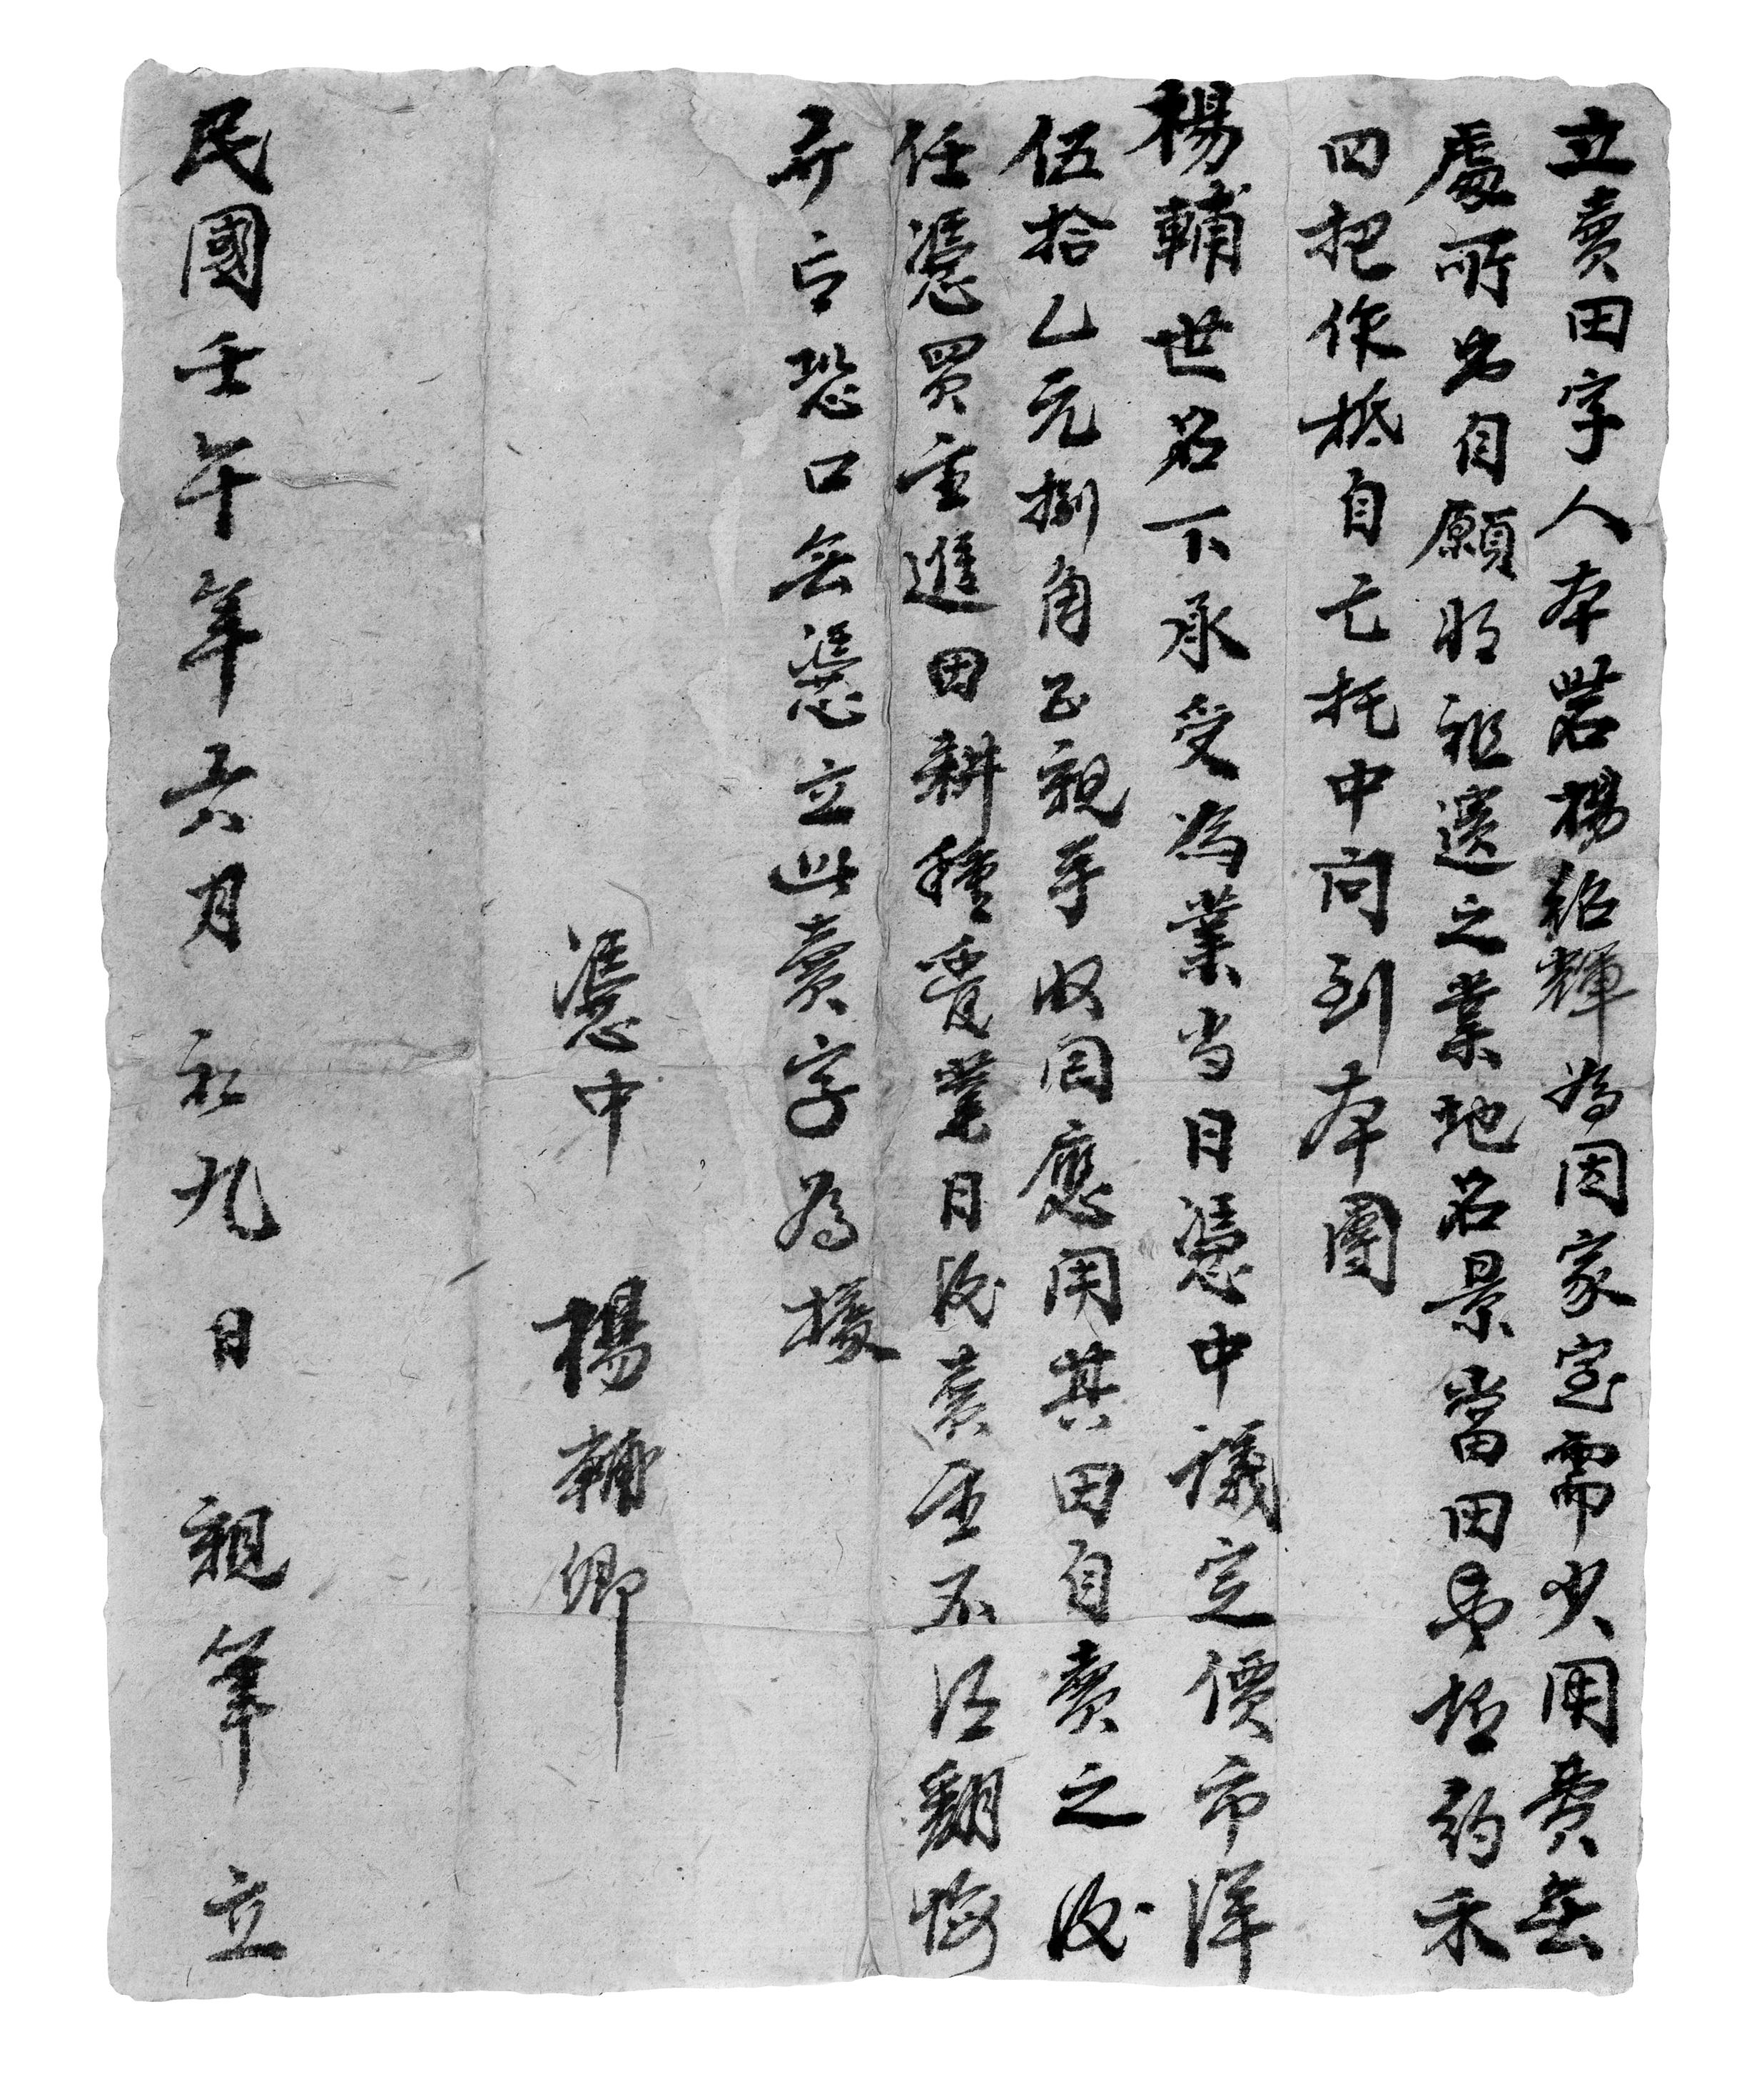 立賣田字人本砦楊紹輝為因家室需少用費無
處所出自願將祖遺之業地名景當田乙坵約禾
四把作抵自己托中向到本團
楊輔世名下承受為業当日憑中議定價市洋
伍拾乙元捌角正親手收囘應用其田自賣之后
任憑買主進田耕種管業日后賣主不得翻悔
弄言恐口無憑立此賣字為據
憑中 楊輔卿
民國壬午年六月初九日 親筆 立